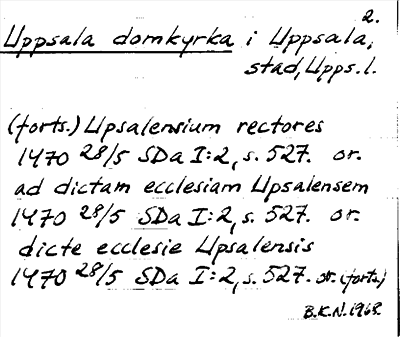 2.
Uppsala domkyrka i Uppsala,
stad, Upps. l.
(forts.) Upsalensium rectores
1470 28/5 SDa I:2, s. 527. or.
ad dictam ecclesiam Upsalensem
1470 28/5 SDa I:2, s. 527. or.
dicte ecclesie Upsalensis
1470 28/5 SDa I:2, s. 527. or. (forts.)
B.K.N. 1968.